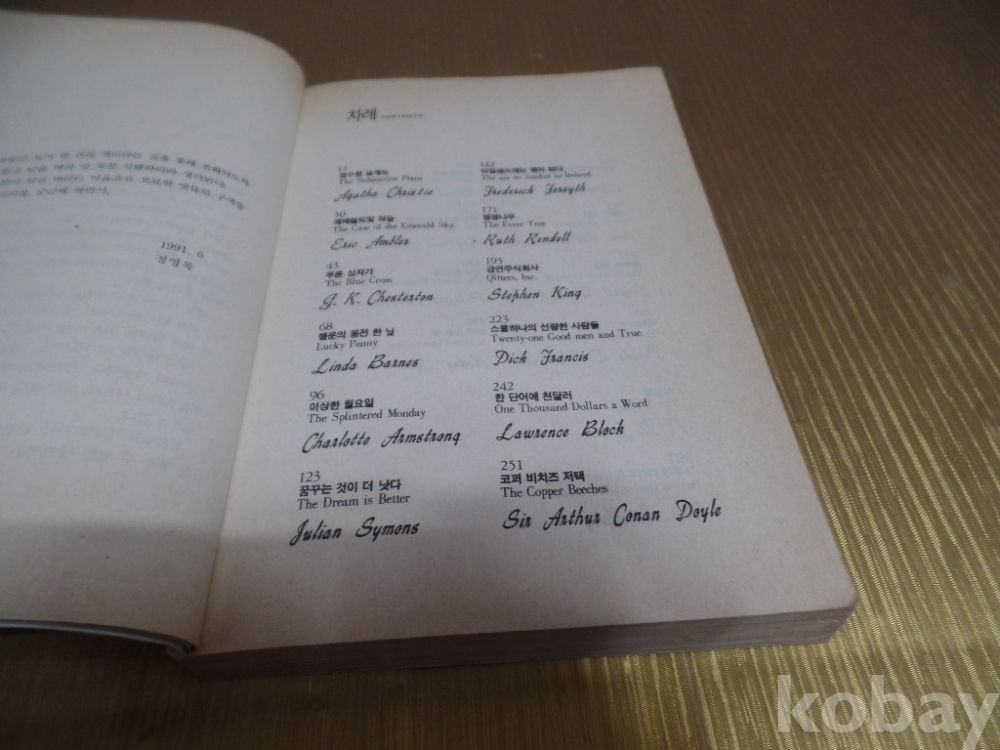 1991. 6
정영목
차례
11
잠수함 설계도
The Submarine Plans
Agatha Christie
30
에메랄드빛 하늘
The Case of the Emerald Sky
Eric Ambler
43
푸른 십자가
The Blue Cross
G. K. Chesterton
68
행운의 동전 한 닢
Lucky Penny
Linda Barnes
96
이상한 월요일
The Splintered Monday
Charlotte Armstrong
123
꿈꾸는 것이 더 낫다
The Dream is Better
Julian Symons
142
아일랜드에는 뱀이 없다
Frederick Forsyth
171
열병나무
The Fever Tree
Ruth Rendell
193
금연주식회사
Qitters, Inc.
Stephen King
223
스물하나의 선량한 사람들
Twenty-one Good men and True
Dick Francis
242
한 단어에 천달러
One Thousand Dollars a Word
Lawrence Block
251
코퍼 비치즈 저택
The Copper Beeches
Sir Arthur Conan Doyle
kobay